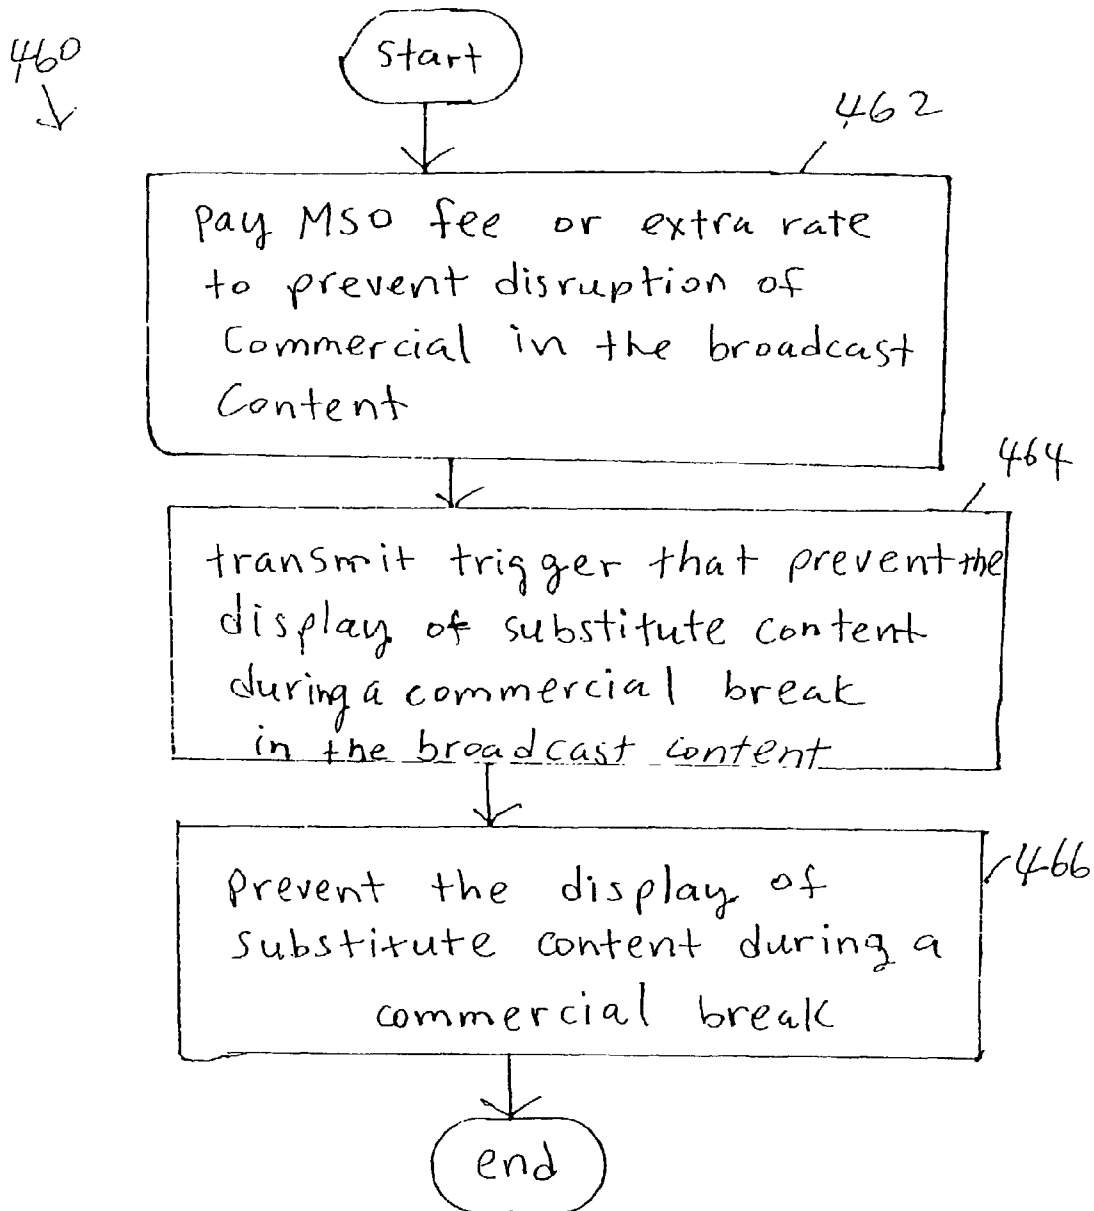 460
start
462
pay MSO fee or extra rate
to prevent disruption of
Commercial in the broadcast
Content
464
transmit trigger that prevent the
display of substitute content
during a commercial break
in the broadcast content
466
prevent the display of
substitute content during a
commercial break
end